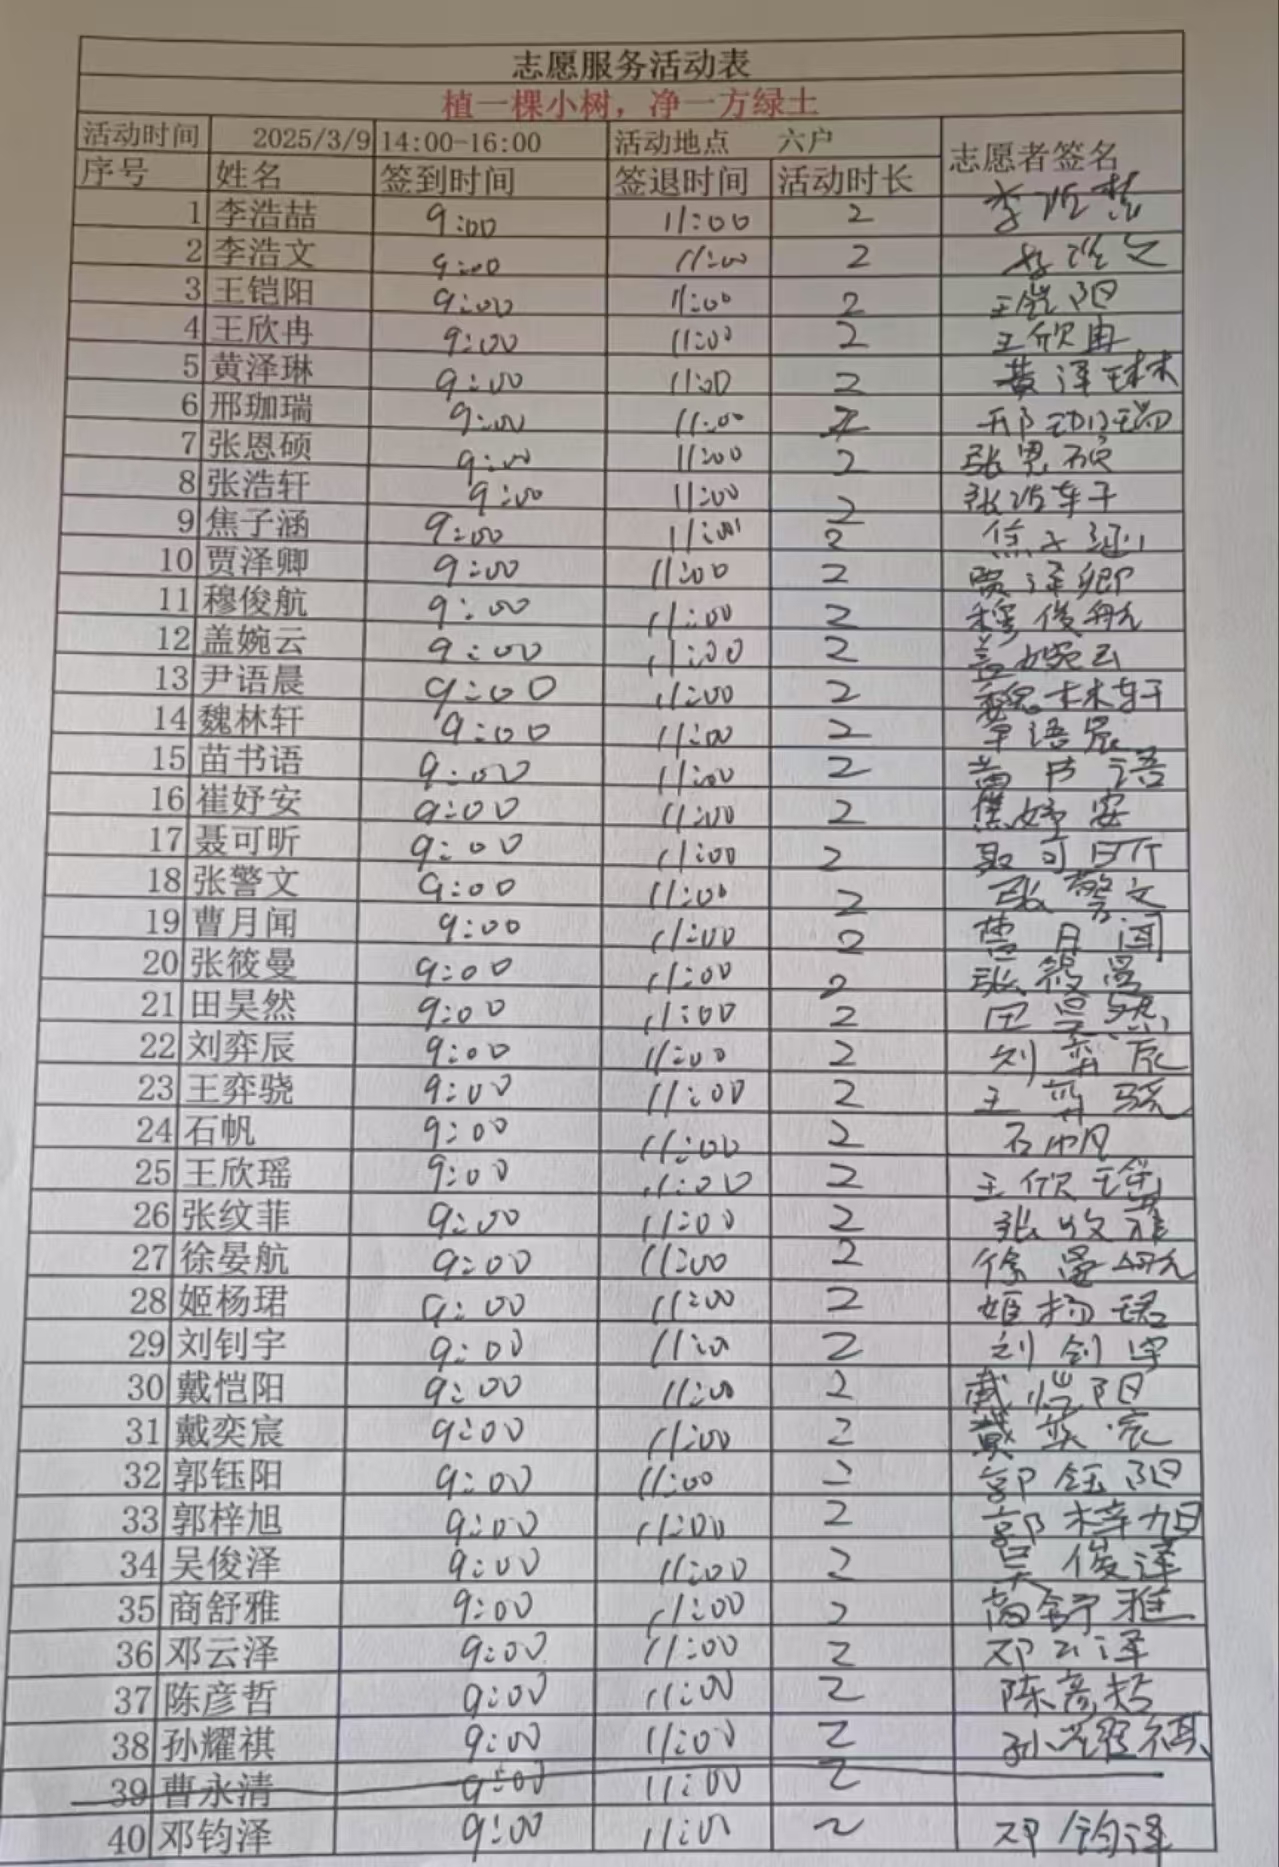 志愿服务活动表
植一棵小树，净一方绿土
活动时间 2025/3/9 14:00-16:00 活动地点 六户 志愿者签名
序号 姓名 签到时间 签退时间 活动时长
1 李浩喆 9:00 11:00 2 李浩喆
2 李浩文 9:00 11:00 2 李浩文
3 王铠阳 9:00 11:00 2 王铠阳
4 王欣冉 9:00 11:00 2 王欣冉
5 黄泽琳 9:00 11:00 2 黄泽琳
6 邢珈瑞 9:00 11:00 2 邢珈瑞
7 张恩硕 9:00 11:00 2 张恩硕
8 张浩轩 9:00 11:00 2 张浩轩
9 焦子涵 9:00 11:00 2 焦子涵
10 贾泽卿 9:00 11:00 2 贾泽卿
11 穆俊航 9:00 11:00 2 穆俊航
12 盖婉云 9:00 11:00 2 盖婉云
13 尹语晨 9:00 11:00 2 魏林轩
14 魏林轩 9:00 11:00 2 尹语晨
15 苗书语 9:00 11:00 2 苗书语
16 崔妤安 9:00 11:00 2 崔妤安
17 聂可昕 9:00 11:00 2 聂可昕
18 张警文 9:00 11:00 2 张警文
19 曹月闻 9:00 11:00 2 曹月闻
20 张筱曼 9:00 11:00 2 张筱曼
21 田昊然 9:00 11:00 2 田昊然
22 刘弈辰 9:00 11:00 2 刘弈辰
23 王弈骁 9:00 11:00 2 王弈骁
24 石帆 9:00 11:00 2 石帆
25 王欣瑶 9:00 11:00 2 王欣瑶
26 张纹菲 9:00 11:00 2 张纹菲
27 徐晏航 9:00 11:00 2 徐晏航
28 姬杨珺 9:00 11:00 2 姬杨珺
29 刘钊宇 9:00 11:00 2 刘钊宇
30 戴恺阳 9:00 11:00 2 戴恺阳
31 戴奕宸 9:00 11:00 2 戴奕宸
32 郭钰阳 9:00 11:00 2 郭钰阳
33 郭梓旭 9:00 11:00 2 郭梓旭
34 吴俊泽 9:00 11:00 2 吴俊泽
35 商舒雅 9:00 11:00 2 商舒雅
36 邓云泽 9:00 11:00 2 邓云泽
37 陈彦哲 9:00 11:00 2 陈彦哲
38 孙耀祺 9:00 11:00 2 孙耀祺
39 曹永清 9:00 11:00 2
40 邓钧泽 9:00 11:00 2 邓钧泽